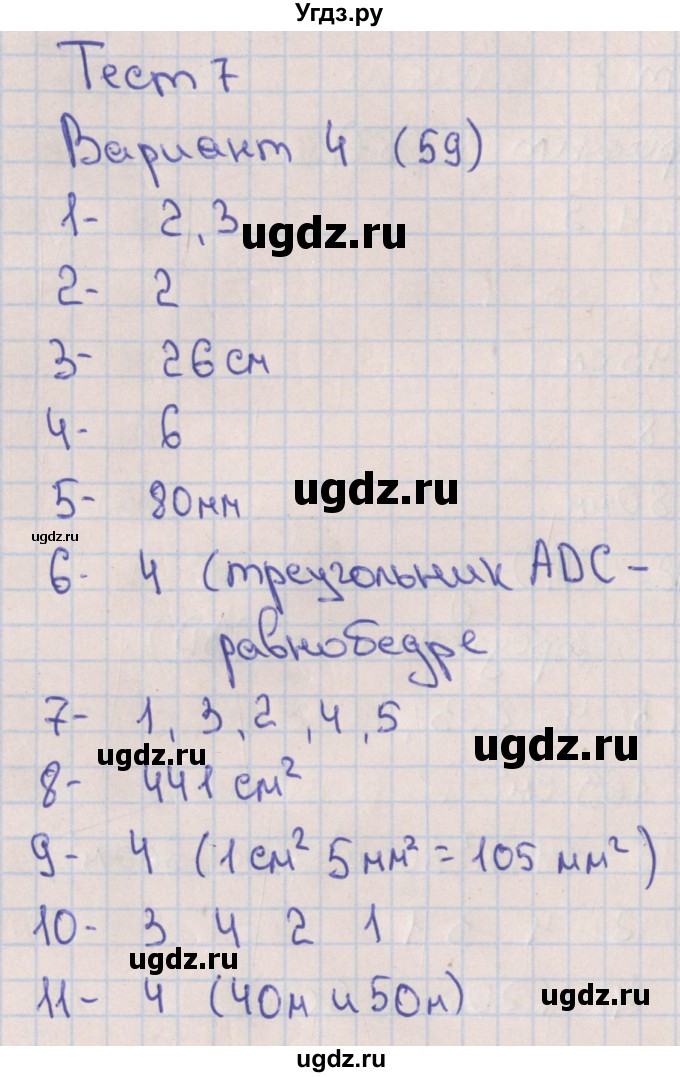 Угдз.ру
Тест 7
Вариант 4 (59)
1- 2,3
ugdz.ru
2- 2
3- 26 см
4- 6
ugdz.ru
5- 80мм
ugdz.ru
6- 4 (треугольник ADC -
равнобедре
7- 1,3,2,4,5
ugdz.ru
ugdz.ru
8- 441 см²
9- 4 (1 см² 5 мм² = 105 мм²)
10- 3 4 2 1
ugdz.ru
11- 4 (40м и 50м)
ugdz.ru
ugdz.ru